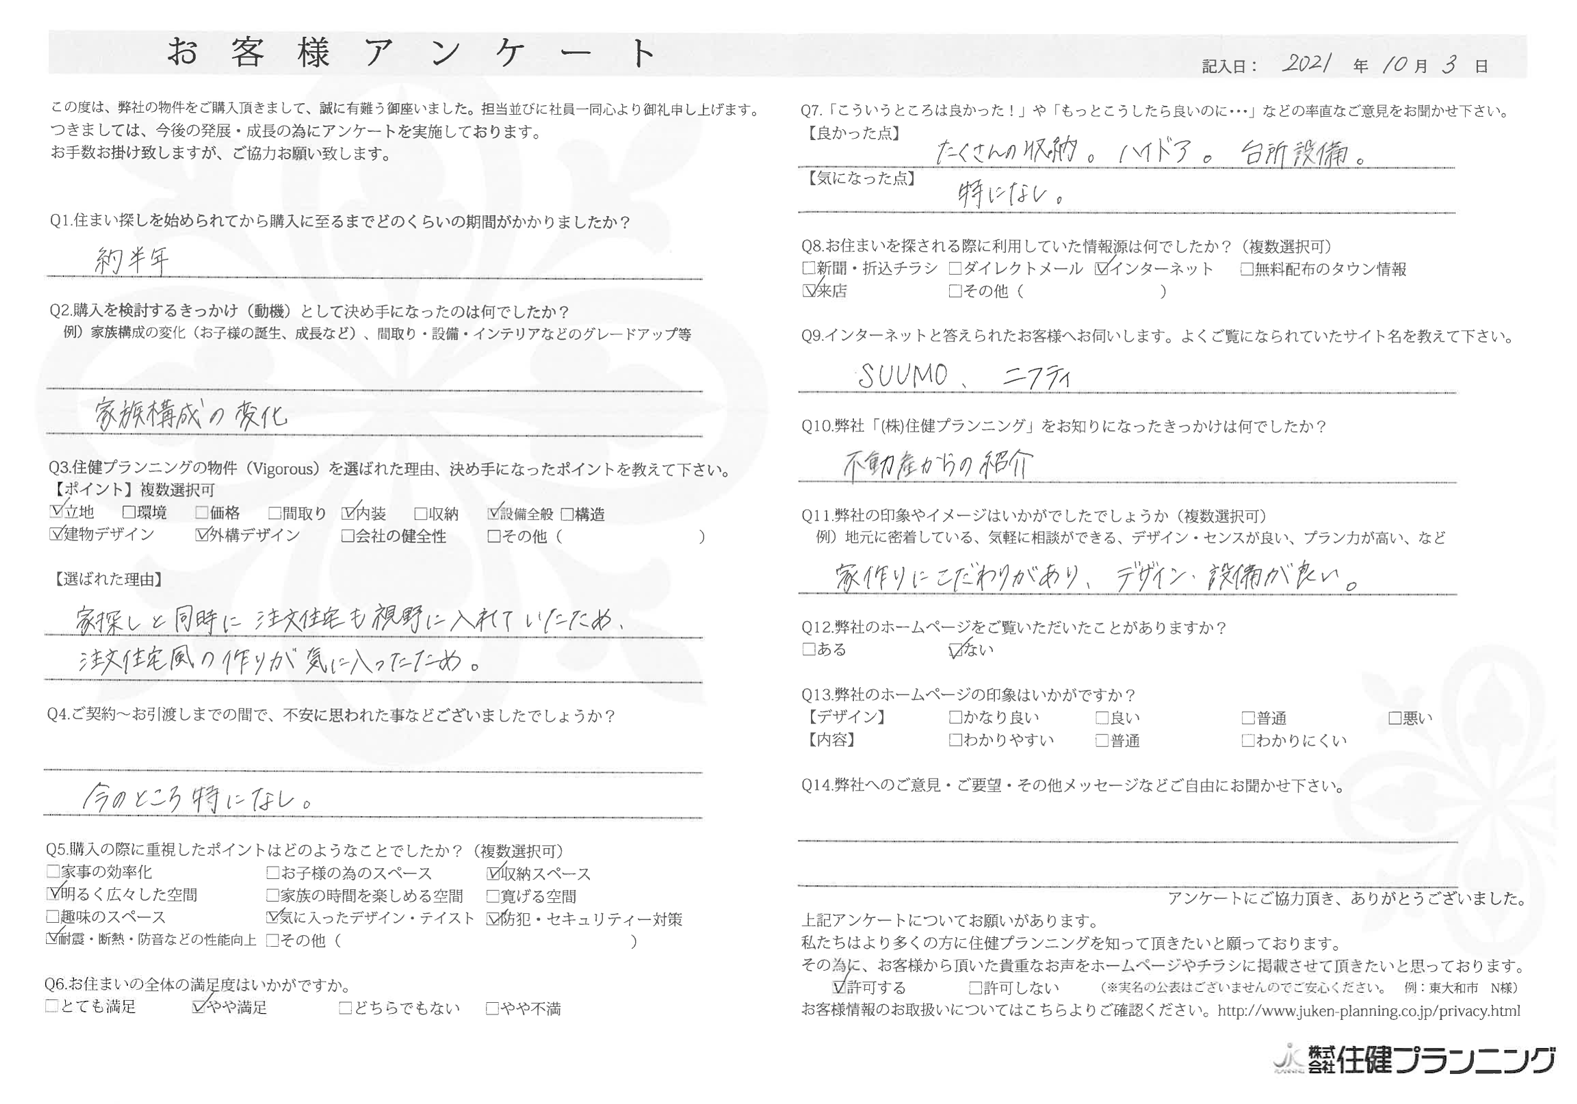 お客様アンケート
記入日： 2021 年 10 月 3 日
この度は、弊社の物件をご購入頂きまして、誠に有難う御座いました。担当並びに社員一同心より御礼申し上げます。
つきましては、今後の発展・成長の為にアンケートを実施しております。
お手数お掛け致しますが、ご協力お願い致します。
Q1.住まい探しを始められてから購入に至るまでどのくらいの期間がかかりましたか？
約半年
Q2.購入を検討するきっかけ（動機）として決め手になったのは何でしたか？
例）家族構成の変化（お子様の誕生、成長など）、間取り・設備・インテリアなどのグレードアップ等
家族構成の変化
Q3.住健プランニングの物件（Vigorous）を選ばれた理由、決め手になったポイントを教えて下さい。
【ポイント】複数選択可
☑立地 □環境 □価格 □間取り ☑内装 □収納 ☑設備全般 □構造
☑建物デザイン ☑外構デザイン □会社の健全性 □その他（ ）
【選ばれた理由】
家探しと同時に注文住宅も視野に入れていたため、
注文住宅風の作りが気に入ったため。
Q4.ご契約～お引渡しまでの間で、不安に思われた事などございましたでしょうか？
今のところ特になし。
Q5.購入の際に重視したポイントはどのようなことでしたか？（複数選択可）
□家事の効率化 □お子様の為のスペース ☑収納スペース
☑明るく広々した空間 □家族の時間を楽しめる空間 □寛げる空間
□趣味のスペース ☑気に入ったデザイン・テイスト ☑防犯・セキュリティー対策
☑耐震・断熱・防音などの性能向上 □その他（ ）
Q6.お住まいの全体の満足度はいかがですか。
□とても満足 ☑やや満足 □どちらでもない □やや不満
Q7.「こういうところは良かった！」や「もっとこうしたら良いのに・・・」などの率直なご意見をお聞かせ下さい。
【良かった点】
たくさんの収納。ハイドア。台所設備。
【気になった点】
特になし。
Q8.お住まいを探される際に利用していた情報源は何でしたか？（複数選択可）
□新聞・折込チラシ □ダイレクトメール ☑インターネット □無料配布のタウン情報
☑来店 □その他（ ）
Q9.インターネットと答えられたお客様へお伺いします。よくご覧になられていたサイト名を教えて下さい。
SUUMO、ニフティ
Q10.弊社「(株)住健プランニング」をお知りになったきっかけは何でしたか？
不動産からの紹介
Q11.弊社の印象やイメージはいかがでしたでしょうか（複数選択可）
例）地元に密着している、気軽に相談ができる、デザイン・センスが良い、プラン力が高い、など
家作りにこだわりがあり、デザイン・設備が良い。
Q12.弊社のホームページをご覧いただいたことがありますか？
□ある ☑ない
Q13.弊社のホームページの印象はいかがですか？
【デザイン】 □かなり良い □良い □普通 □悪い
【内容】 □わかりやすい □普通 □わかりにくい
Q14.弊社へのご意見・ご要望・その他メッセージなどご自由にお聞かせ下さい。
アンケートにご協力頂き、ありがとうございました。
上記アンケートについてお願いがあります。
私たちはより多くの方に住健プランニングを知って頂きたいと願っております。
その為に、お客様から頂いた貴重なお声をホームページやチラシに掲載させて頂きたいと思っております。
☑許可する □許可しない （※実名の公表はございませんのでご安心ください。 例：東大和市 N様）
お客様情報のお取扱いについてはこちらよりご確認ください。http://www.juken-planning.co.jp/privacy.html
株式会社住健プランニング